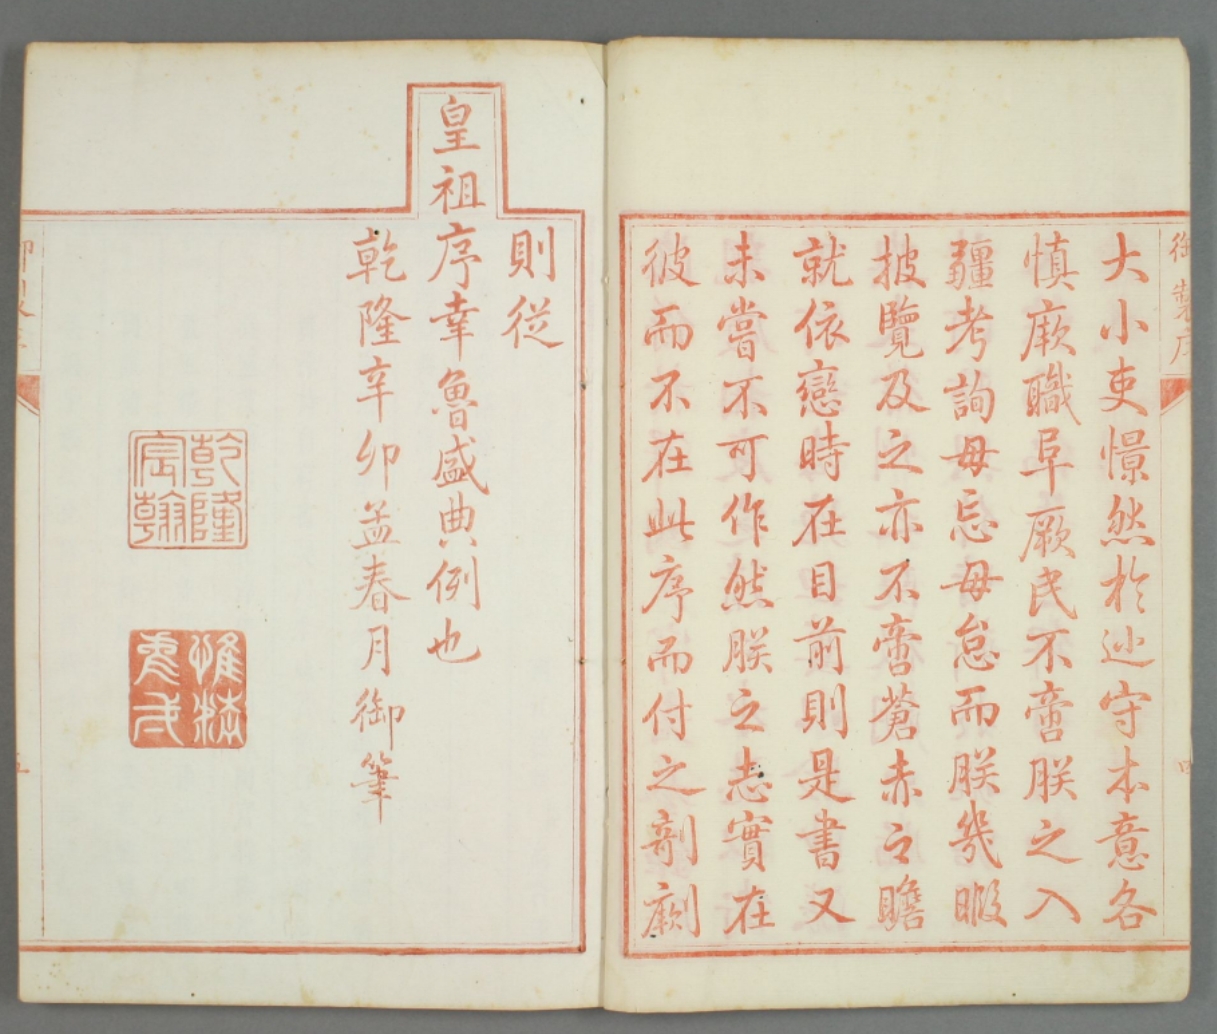 御製序
大小吏憬然於巡守本意各
慎厥職阜厥民不啻朕之入
疆考詢毋忘毋怠而朕幾暇
披覽及之亦不啻蒼赤之瞻
就依戀時在目前則是書又
未嘗不可作然朕之志實在
彼而不在此序而付之剞劂
四
則從
皇祖序幸魯盛典例也
乾隆辛卯孟春月御筆
乾隆
宸翰
惟精